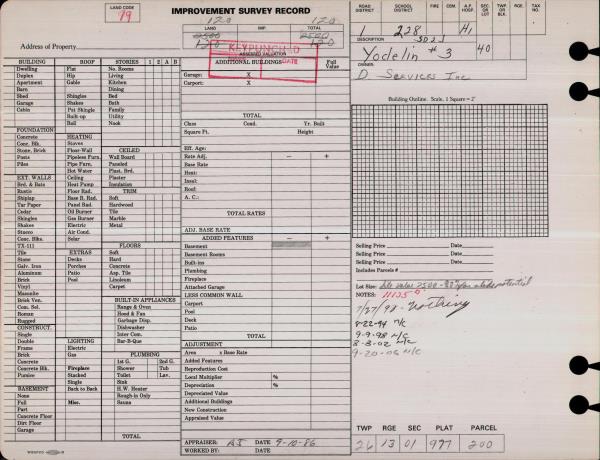 LAND CODE
79
IMPROVEMENT SURVEY RECORD
120 120
LAND IMP. TOTAL
2500 2500
120 120
Address of Property
ASSESSED VALUATION
KEYPUNCH'D
DATE
ROAD DISTRICT SCHOOL DISTRICT FIRE CEM. A.P. HOSP. SEC OR LOT TWP OR BLK. TAX NO.
1 228 H1
DESCRIPTION
Yodelin #3 40
OWNER
D Services Inc
BUILDING ROOF STORIES 1 2 A B
Dwelling Flat No. Rooms
Duplex Hip Living
Apartment Gable Kitchen
Barn Dining
Shed Shingles Bed
Garage Shakes Bath
Cabin Pat Shingle Family
Built-up Utility
Roll Nook
FOUNDATION
Concrete HEATING
Conc. Blk. Stoves
Stone, Brick Floor-Wall CEILED
Posts Pipeless Furn. Wall Board
Piles Pipe Furn. Paneled
Hot Water Plast. Brd.
EXT. WALLS Ceiling Plaster
Brd. & Bats Heat Pump Insulation
Rustic Floor Rad. TRIM
Shiplap Base B. Rad. Soft
Tar Paper Panel Rad. Hardwood
Cedar Oil Burner Tile
Shingles Gas Burner Marble
Shakes Electric Metal
Stucco Air Cond.
Conc. Blks. Solar
TX-111 FLOORS
Tile EXTRAS Soft
Stone Decks Hard
Galv. Iron Porches Concrete
Aluminum Patio Asp. Tile
Tin Pool Linoleum
Vinyl Carpet
Masonite
Brick Ven. BUILT-IN APPLIANCES
Com. Sol. Range & Oven
Roman Hood & Fan
Rugged Garbage Disp.
CONSTRUCT. Dishwasher
Single Inter Com.
Double LIGHTING Bar-B-Que
Frame Electric
Brick Gas PLUMBING
Concrete 1st G. 2nd G.
Concrete Blk. Fireplace Shower Tub
Pumice Stacked Toilet Lav.
Single Sink
BASEMENT Back to Back H.W. Heater
None Rough-in Only
Full Misc. Sauna
Part
Concrete Floor
Dirt Floor
Garage
TOTAL
ADDITIONAL BUILDINGS Full Value
Garage: X
Carport: X
TOTAL
Class Cond. Yr. Built
Square Ft. Height
Eff. Age:
Rate Adj. − +
Base Rate
Heat:
Insul:
Roof:
A. C.:
TOTAL RATES
ADJ. BASE RATE
ADDED FEATURES − +
Basement
Basement Rooms
Built-ins
Plumbing
Fireplace
Attached Garage
LESS COMMON WALL
Carport
Pool
Deck
Patio
TOTAL
ADJUSTMENT
Area x Base Rate
Added Features
Reproduction Cost
Local Multiplier %
Depreciation %
Depreciated Value
Additional Buildings
New Construction
Appraised Value
APPRAISER: AJ DATE 9-10-86
WORKED BY: DATE
Building Outline. Scale, 1 Square = 2'
Selling Price Date
Selling Price Date
Selling Price Date
Includes Parcels #
Lot Size:
NOTES:
8-22-94 N/C
9-9-98 N/C
8-8-02 N/C
9-20-06 N/C
TWP RGE SEC PLAT PARCEL
26 13 01 977 200